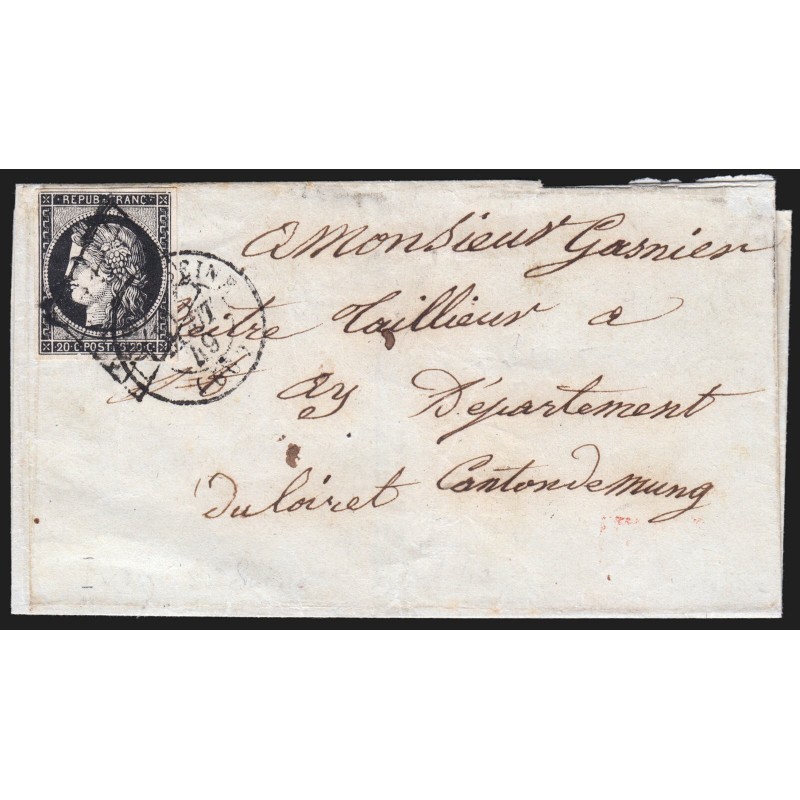 REPUB FRANC
20 C POSTES 20 C
SEINE
49
a Monsieur Gasnier
Tailleur a
ay Département
du loiret Canton de mung